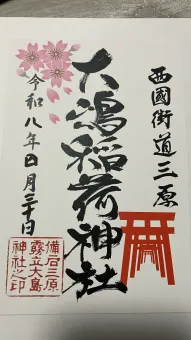 西國街道三原
大嶋稲荷神社
令和八年四月三十日
備后三原
霧立大島
神社之印